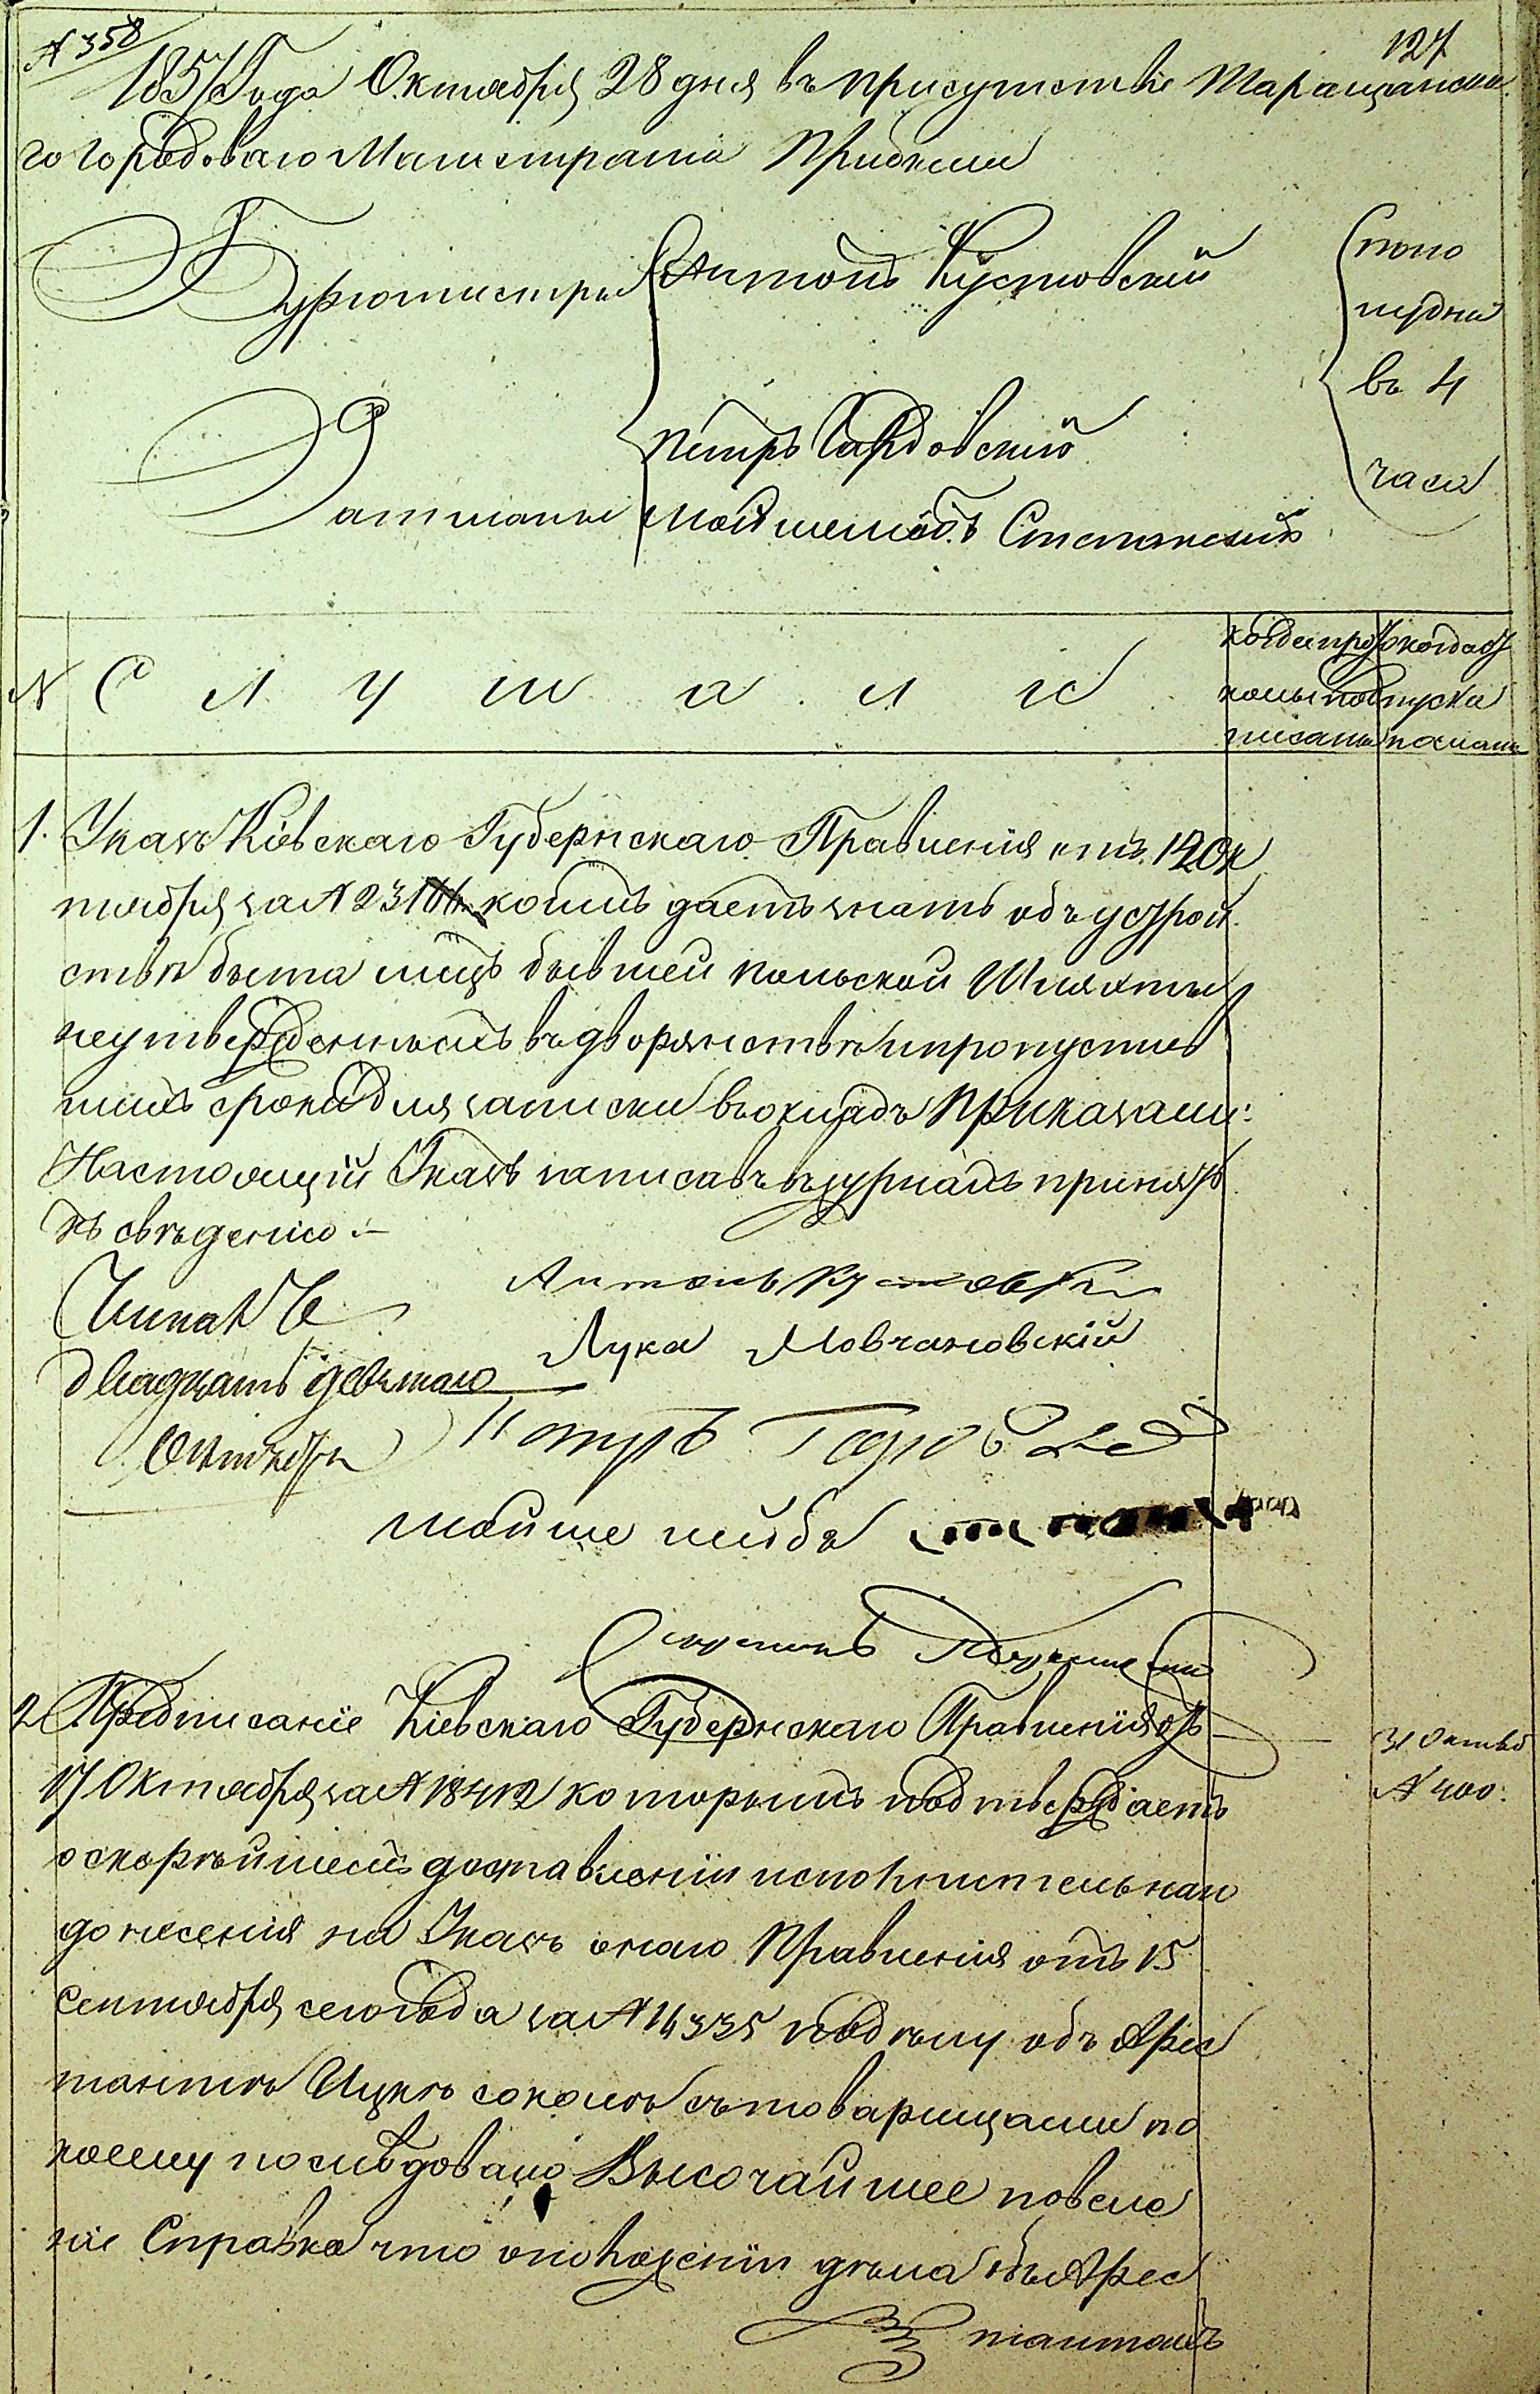 № 358
127
1857 Года Октября 28 дня въ присутствіе Таращанска
го городоваго Магистрата Прибыли
Бургомистры Антонъ Кустовскій
Ратманы Петръ
Мойше Лейбъ
пополу
дни
въ 4
часа
№ С л у ш а л и
когда про
токолы под
писаны
когда от
пуска
посланы
1. Указъ Кіевскаго Губернскаго Правленія отъ 12 Ок
тября за № коимъ даетъ знать объ устрой
ствѣ быта лицъ бывшей польской Шляхты
неутвержденныхъ въ дворянствѣ и пропустив
шихъ сроки для записки въ окладъ Приказали:
Настоящій Указъ записавъ въ журналъ принять
къ свѣденію.-
двадцать девятаго
Октября
Антонъ Кустовскій
Лука Мовчановскій
Петръ
Мойше Лейбъ
Секретарь
2. Предписаніе Кіевскаго Губернскаго Правленія отъ
17 Октября за № 18412 которымъ подтверждаетъ
о скорѣйшемъ доставленіи исполнительнаго
донесенія на Указъ онаго Правленія отъ 15
Сентября сего года за № 16335 по дѣлу объ Арес
тантѣ Ицкѣ Соколѣ съ товарищами по
коему послѣдовало Высочайшее повеле
ніе Справка что о положеніи дѣла объ Арес
тантахъ
31 Октяб
№ 400.